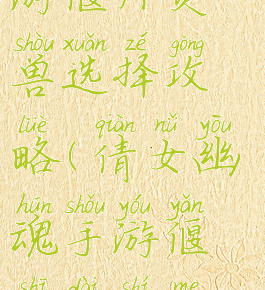 shòu xuǎn zé gōng
兽选择攻
lüè qiàn nǚ yōu
略(倩女幽
hún shǒu yóu yǎn
魂手游偃
shī dài shí me